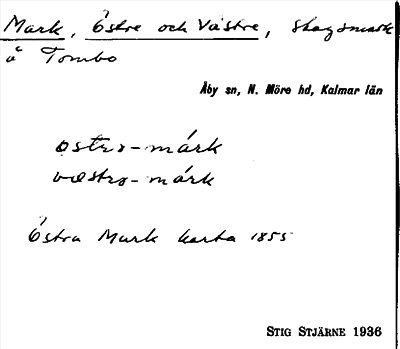 Mark, Östre och Västre, skogsmark
å Tombo
Åby sn, N. Möre hd, Kalmar län
østrə-márk
væstrə-márk
Östra Mark karta 1855
STIG STJÄRNE 1936